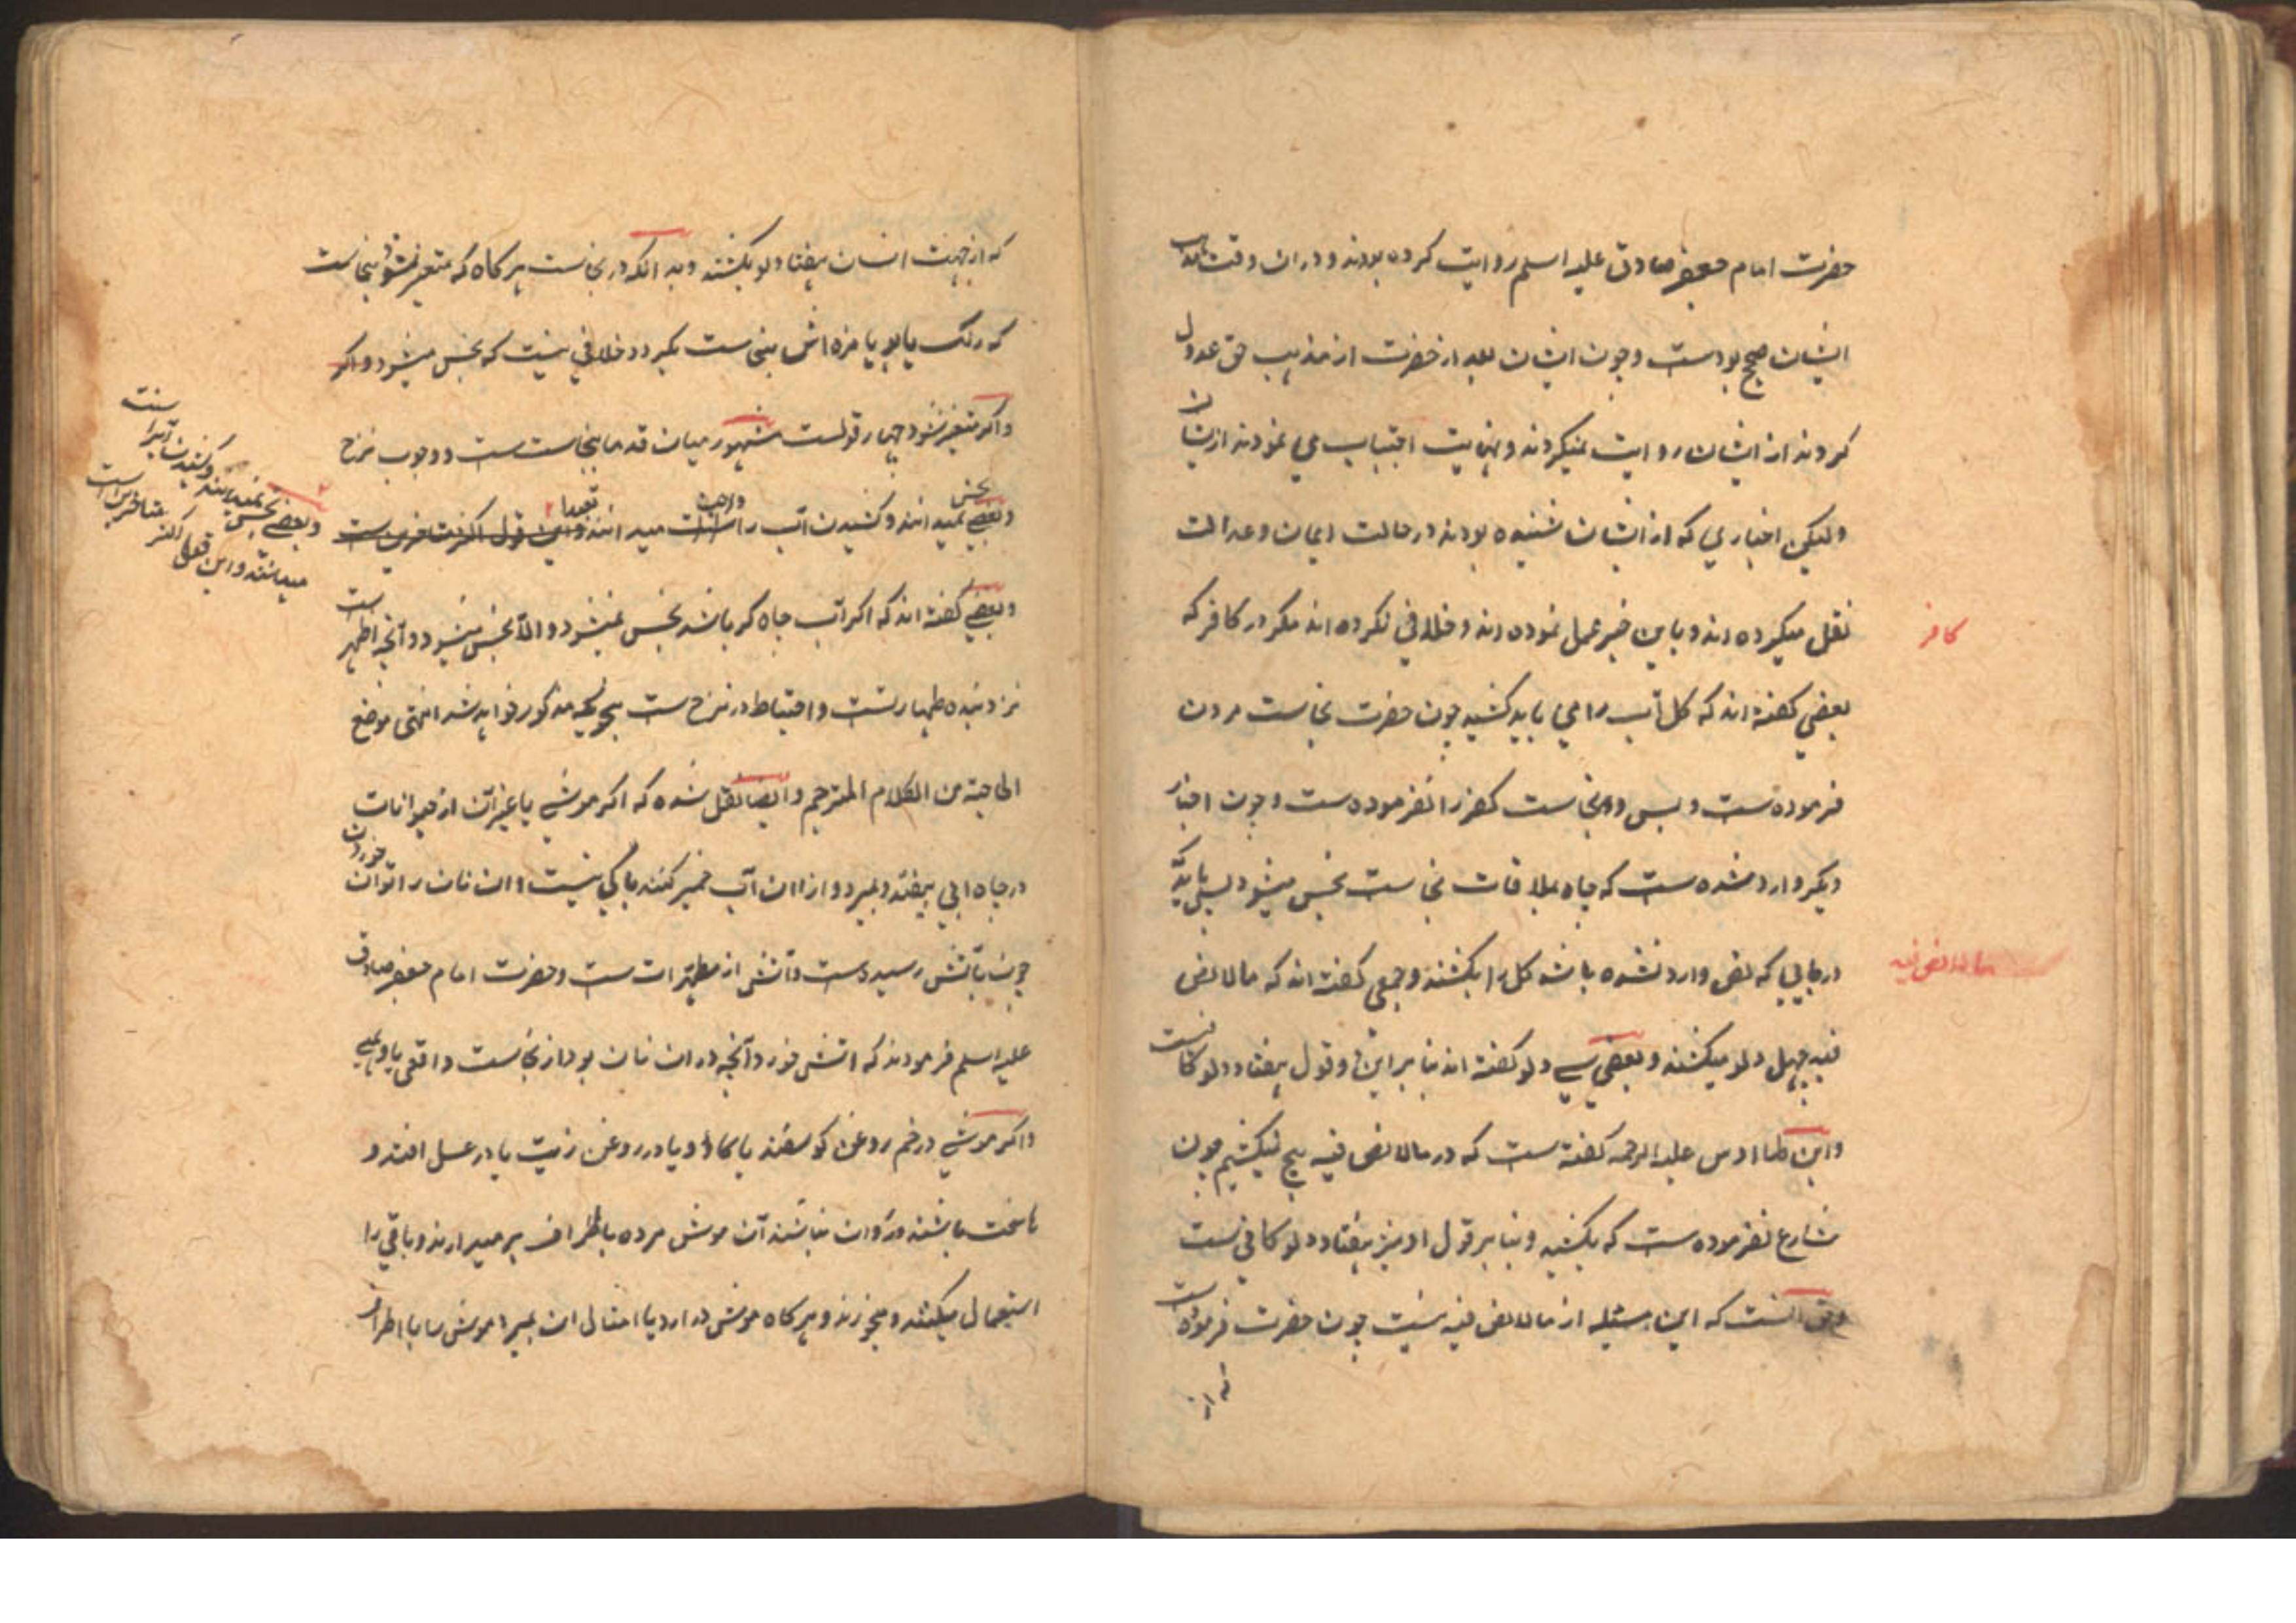 حضرت امام جعفر صادق علیه اسلم روایت کرده بودند و دران وقت مذهب
ایشان صحیح بودست و چون ایشان بعد از حضرت از مذهب حق عدول
کردند از ایشان روایت نمیکردند و نهایت اجتناب می نمودند ازیشان
ولیکن اخباری که از ایشان شنیده بودند در حالت ایمان و عدالت
نقل میکرده اند و باین خبر عمل نموده اند و خلافی نکرده اند مکر در کافر که
کافر
بعضی کفته اند که کل آب را می باید کشید چون حضرت نجاست مردن
فرموده ست و بس و نجاست کفر را نفرموده ست و چون اخبار
دیکر وارد شده ست که چاه بملاقات نجاست نجس میشود پس باید که
در جایی که نص وارد نشده باشد کل را بکشند و جمعی کفته اند که مالانص
مالانص فیه
فیه چهل دلو میکشند و بعضی سی دلو کفته اند بنا براین دو قول هفتاد دلو کافیست
وابن طااوس علیه الرحمه کفته ست که در مالانص فیه هیچ نمیکشیم چون
شارع نفرموده ست که بکشید و بنا بر قول او نیز هفتاد دلو کافی نست
وحق انست که این مسئله از مالانص فیه نیست چون حضرت فرموده است
که از
که از جهت انسان هفتاد دلو بکشند و بد انکه در نجاست هر کاه که متغیر نشود بنجاست
که رنک یا بو یا مزه اش بنجاست بکیرد خلافی نیست که نجس میشود و اکر
واکر متغیر نشود چهار قولست مشهور میان قدما نجاست ست و وجوب نزح
وبعضی نجس نمیدانند و کشیدن آب را واجب میدانند تعبدا واین قول اکثر متاخرین ست
وبعضی نجس نمیدانند وکشیدن آبرا سنت
میدانند واین قول اکثر متاخرین است
وبعضی کفته اند که اکر آب چاه کر باشد نجس نمیشود والا نجس میشود و آنچه اظهر است
نزد بنده طهارتست و احتیاط در نزح ست بنحویکه مذکور خواهد شد انتهی موضع
الحاجة من الکلام المترجم و ایضا نقل شده که اکر موشی یا غیر آن از حیوانات
در چاه ابی بیفتد و بمیرد و از ان آب خمیر کنند باکی نیست و ان نان را توان خوردن
چون بآتش رسیدست و آتش از مطهرات ست و حضرت امام جعفر صادق
علیه اسلم فرمودند که اتش خورد آنچه در ان نان بود از نجاست واقعی یا وهمی
واکر موشی در خم روغن کوسفند یا کاو و یا در روغن زیت یا در عسل افتد و
ناسخت باشند و روان نباشند آن موش مرده با اطراف بر میدارند و باقی را
استعمال میکنند و میخورند و هر کاه موش در ارد یا امثال ان بمیرد موش را با اطراف